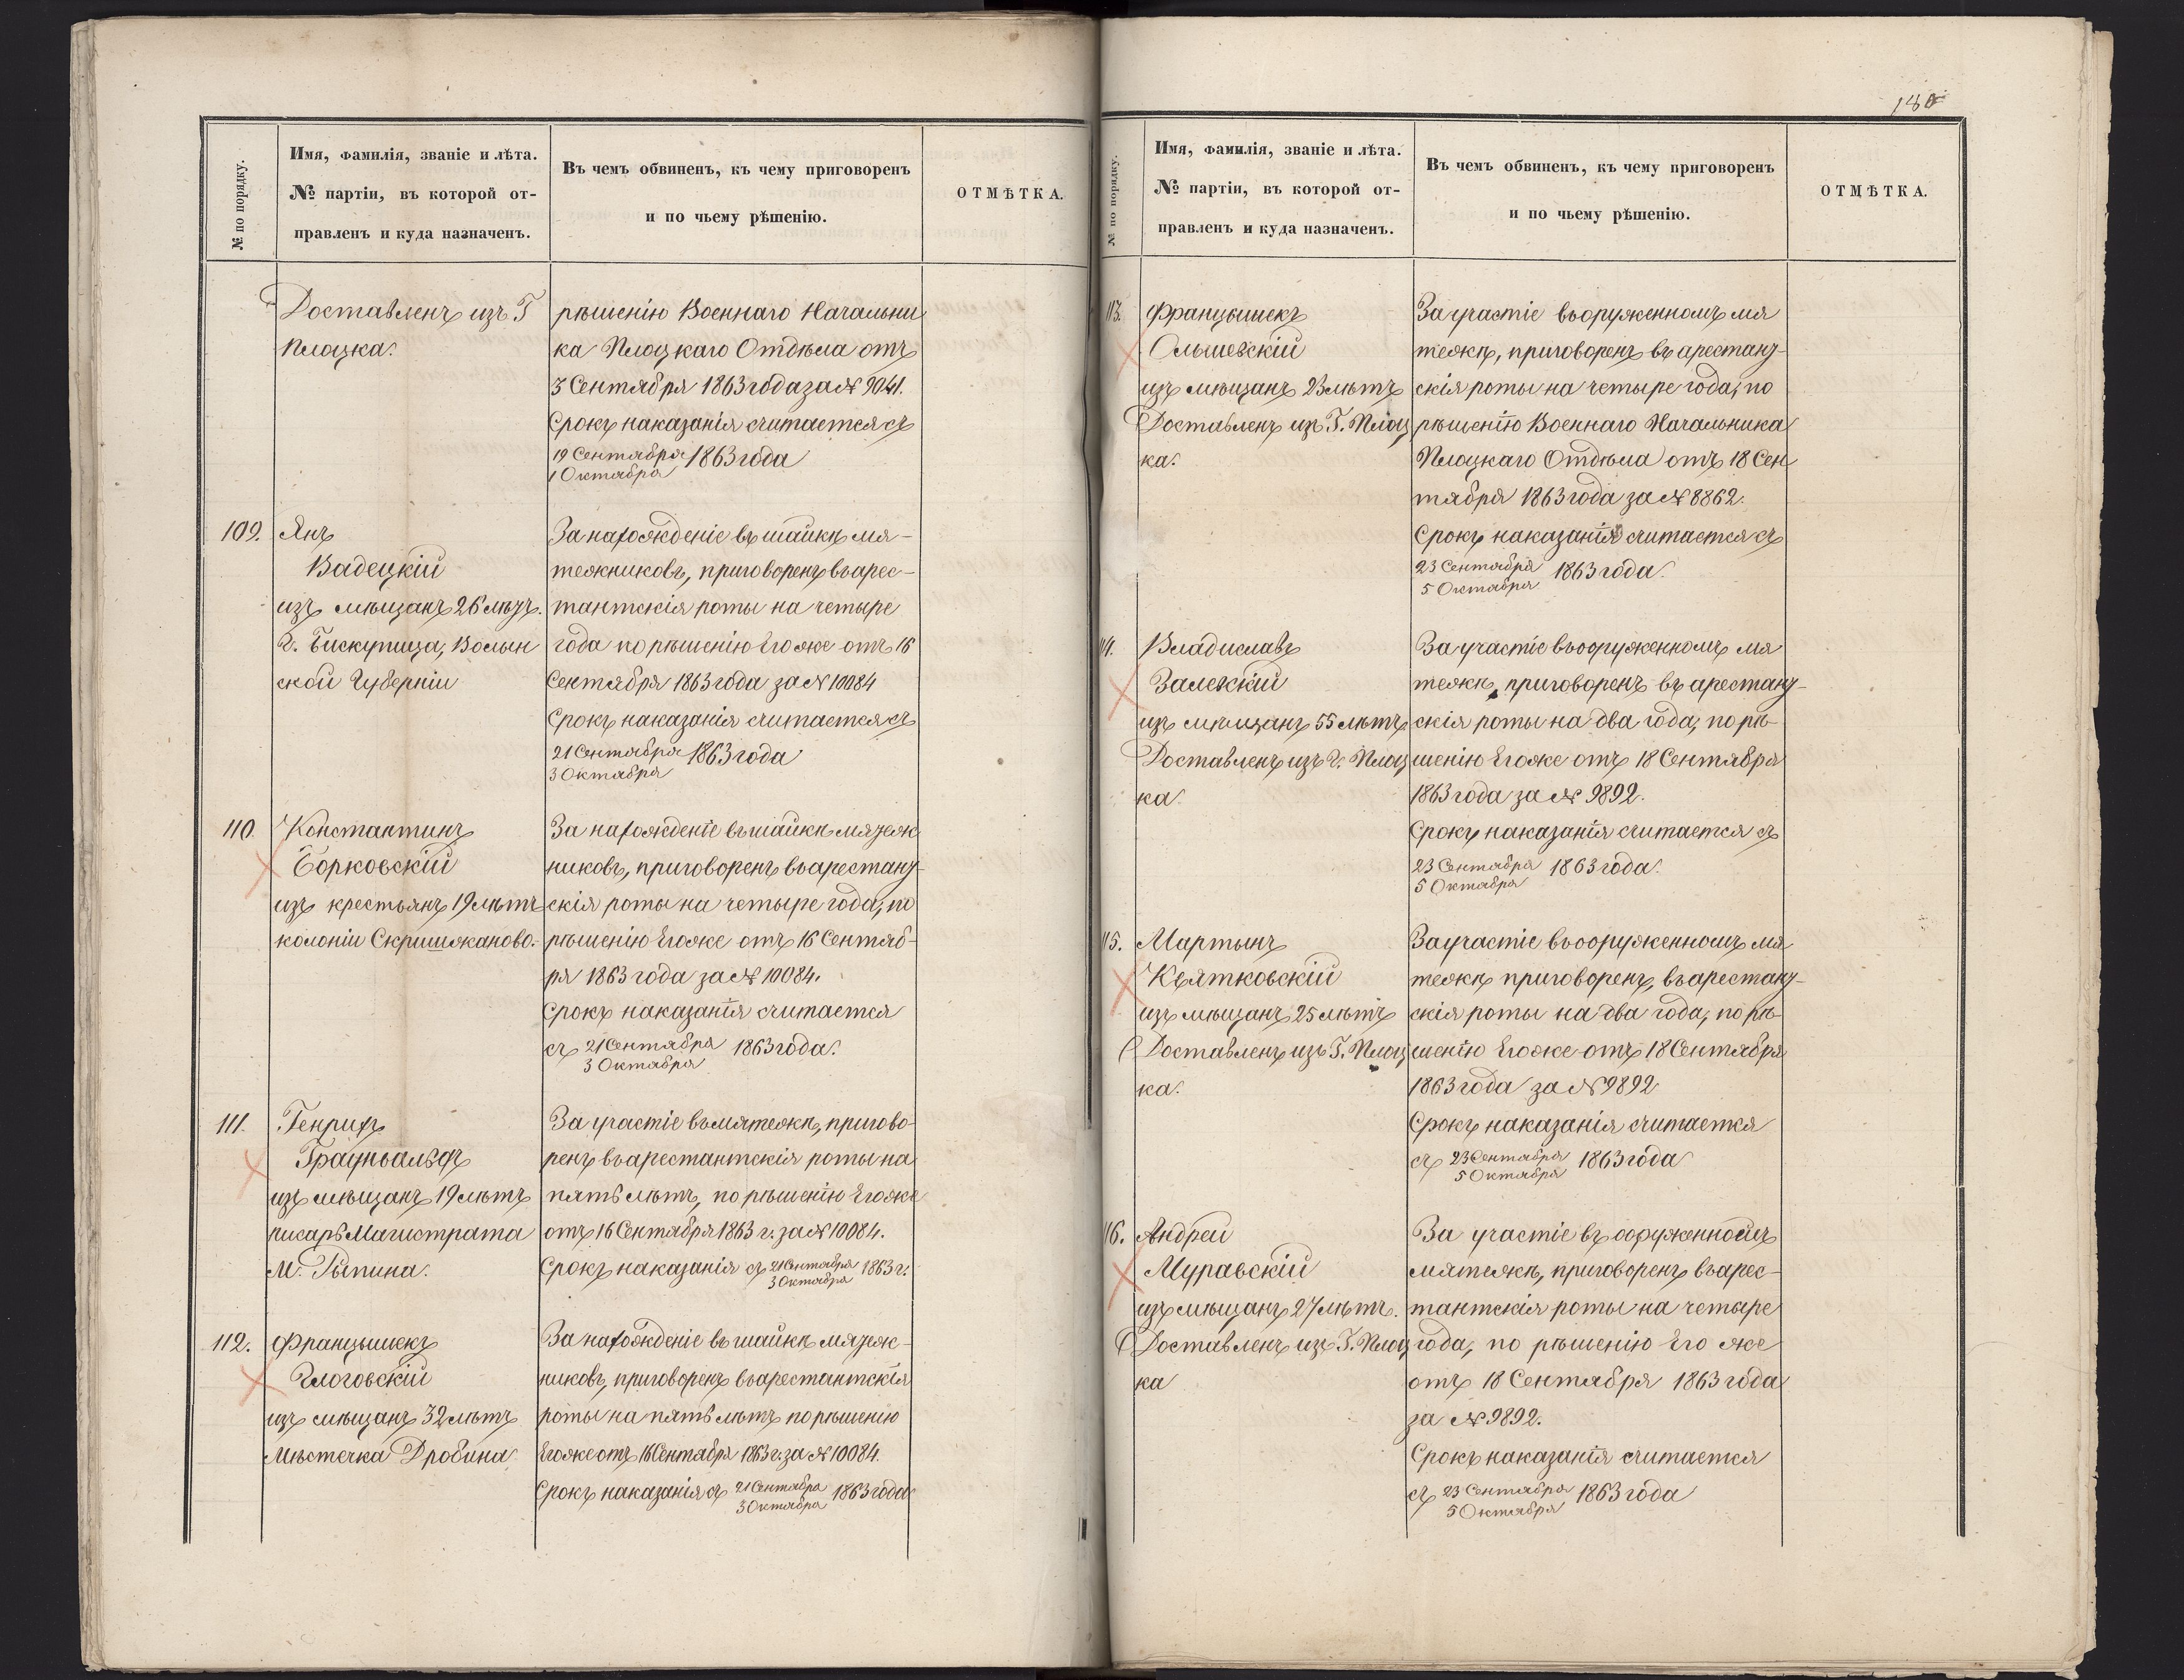 180
№ по порядку.
Имя, Фамилія, званіе и лѣта.
№ партіи, въ которой от-
правленъ и куда назначенъ.
Въ чемъ обвиненъ, къ чему приговоренъ
и по чьему рѣшенію.
ОТМѢТКА.
Доставленъ изъ Г
Плоцка.
рѣшенію Военнаго Начальни
ка Плоцкаго Отдѣла отъ
3 Сентября 1863 года за № 9041.
Срокъ наказанія считается съ
19 Сентября 1863 года
1 Октября
109.
Янъ
Вадецкій
изъ мѣщанъ 26 лѣтъ.
д. Бискупица, Волын
ской Губерніи
За нахожденіе въ шайкѣ мя-
тежниковъ, приговоренъ въ арес-
тантскія роты на четыре
года по рѣшенію Его же отъ 16
Сентября 1863 года за № 10084
Срокъ наказанія считается съ
21 Сентября 1863 года
3 Октября
110.
Константинъ
Борковскій
изъ крестьянъ 19 лѣтъ
колоніи
За нахожденіе въ шайкѣ мятеж
никовъ, приговоренъ въ арестант-
скія роты на четыре года, по
рѣшенію Его же отъ 16 Сентяб-
ря 1863 года за № 10084.
Срокъ наказанія считается
съ 21 Сентября 1863 года.
3 Октября
111.
Генрихъ
Грауньальфъ
изъ мѣщанъ 19 лѣтъ
писарь Магистрата
М. Рыпина.
За участіе въ мятежѣ, пригово-
ренъ въ арестантскія роты на
пять лѣтъ, по рѣшенію Его же
отъ 16 Сентября 1863 г. за № 10084.
Срокъ наказанія съ 21 Сентября 1863 г.
3 Октября
112.
Францышекъ
Глоговскій
изъ мѣщанъ 32 лѣтъ
Мѣстечка Дробина
За нахожденіе въ шайкѣ мятеж-
никовъ, приговоренъ въ арестантскія
роты на пять лѣтъ по рѣшенію
Его же отъ 16 Сентября 1863 г. за № 10084.
Срокъ наказанія съ 21 Сентября 1863 года
3 Октября
№ по порядку.
Имя, Фамилія, званіе и лѣта.
№ партіи, въ которой от-
правленъ и куда назначенъ.
Въ чемъ обвиненъ, къ чему приговоренъ
и по чьему рѣшенію.
ОТМѢТКА.
113.
Францышекъ
Ольшевскій
изъ мѣщанъ 23 лѣтъ
Доставленъ изъ Г. Плоц
ка.
За участіе вьоруженномъ мя
тежѣ, приговоренъ въ арестант-
скія роты на четыре года, по
рѣшенію Военнаго Начальника
Плоцкаго Отдѣла отъ 18 Сен
тября 1863 года за № 8862.
Срокъ наказанія считается съ
23 Сентября 1863 года.
5 Октября
114.
Владиславъ
Залескій
изъ мѣщанъ 55 лѣтъ
Доставленъ изъ Г. Плоц
ка.
За участіе въ вооруженномъ мя
тежѣ, приговоренъ въ арестант-
скія роты на два года, по рѣ-
шенію Его же отъ 18 Сентября
1863 года за № 9892.
Срокъ наказанія считается съ
23 Сентября 1863 года.
5 Октября
115.
Мартынъ
Квятковскій
изъ мѣщанъ 25 лѣтъ
Доставленъ изъ Г. Плоц
ка.
За участіе въ вооруженномъ мя
тежѣ приговоренъ, въ арестант-
скія роты на два года, по рѣ-
шенію Его же отъ 18 Сентября
1863 года за № 9892
Срокъ наказанія считается
съ 23 Сентября 1863 года
5 Октября
116.
Андрей
Муравскій
изъ мѣщанъ 27 лѣтъ.
Доставленъ изъ Г. Плоц
ка
За участіе въ ооруженномъ
мятежѣ, приговоренъ въ арес-
тантскія роты на четыре
года, по рѣшенію Его же
отъ 18 Сентября 1863 года
за № 9892.
Срокъ наказанія считается
съ 23 Сентября 1863 года
5 Октября